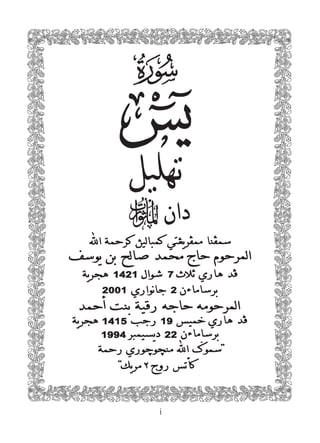 سُورَة
يسٓ
تهليل
دان المأثورات
سمڤنا سمڤريڠتي كمبالين كرحمة الله
المرحوم حاج محمد صالح بن يوسف
ڤد هاري ثلاث 7 شوال 1421 هجرية
برساماءن 2 جانواري 2001
المرحومه حاجه رقية بنت أحمد
ڤد هاري خميس 19 رجب 1415 هجرية
برساماءن 22 ديسيمبر 1994
"سموݢ الله منچوچوري رحمة
كأتس روح٢ مريك"
i